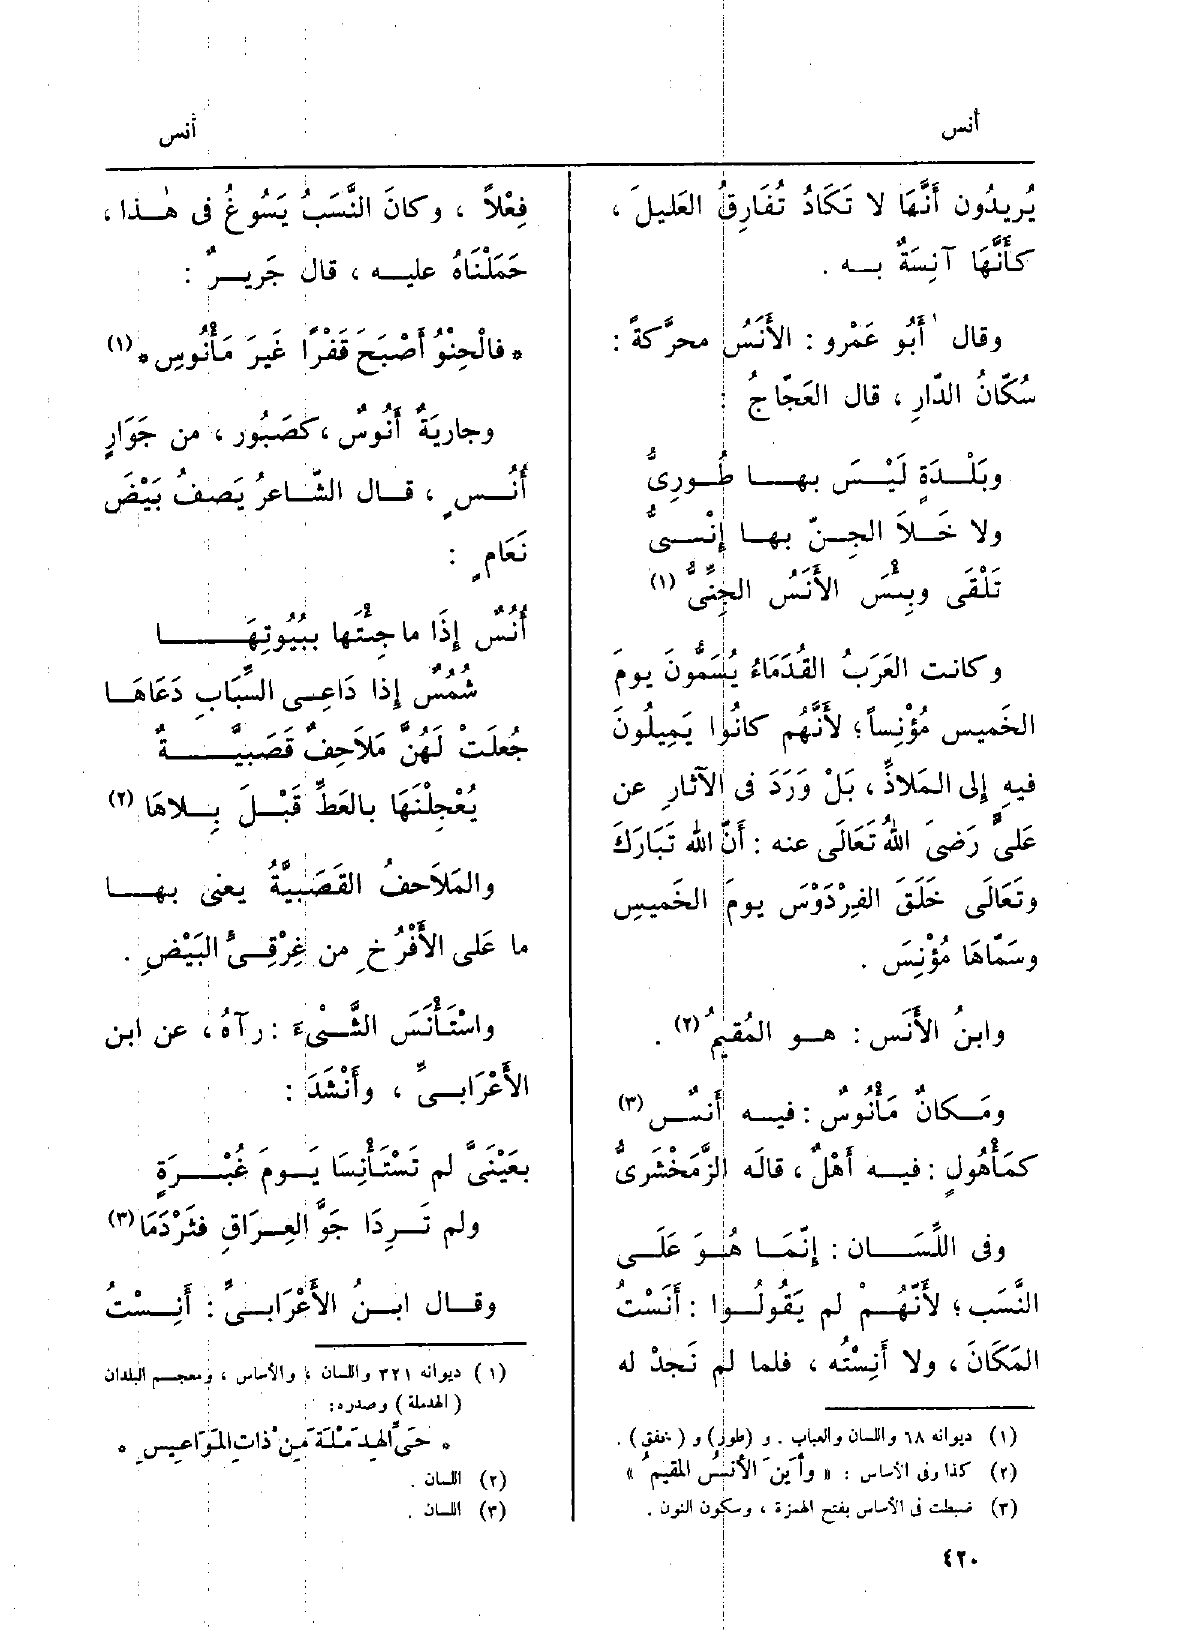 أنس
أنس
يُرِيدُون أَنَّهَا لا تَكَادُ تُفَارِقُ العَلِيلَ ،
كأَنَّهَا آنِسَةٌ بـه .
وقال أَبُو عَمْرو : الأَنَسُ محرَّكةً :
سُكَّانُ الدَّارِ ، قال العَجّاجُ :
وبَلْـدَةٍ لَيْـسَ بهـا طُورِىُّ
ولا خَـلاَ الجِـنّ بهـا إِنْـسِىُّ
تَلْقَى وبِئْسَ الأَنَسُ الجِنِّىُّ (١)
وكانت العَرَبُ القُدَمَاءُ يُسَمُّونَ يومَ
الخَمِيس مُؤْنِساً؛ لأَنَّهُم كانُوا يَمِيلُونَ
فيهِ إِلى المَلاذِّ ، بَلْ وَرَدَ فى الآثارِ عن
عَلىٍّ رَضىَ اللهُ تَعَالَى عنه : أَنَّ الله تَبَارَكَ
وتَعَالَى خَلَقَ الفِرْدَوْسَ يومَ الخَمِيسِ
وسَمَّاهَا مُؤْنِسَ .
وابنُ الأَنَس : هـو المُقِيمُ (٢) .
ومَـكانٌ مَأْنُوسٌ : فيـه أَنسٌ (٣)
كمَأْهُولٍ : فيـه أَهْلٌ ، قالَه الزَّمَخْشَرِىُّ
وفى اللِّسَـان : إِنَّمَـا هُـوَ عَلَـى
النَّسَب؛ لأَنَّهُـمْ لم يَقُولُـوا : أَنَسْتُ
المَكَانَ ، ولا أَنِسْتُه ، فلما لم نَجِدْ له
(١) ديوانه ٦٨ واللسان والعباب . و (طور) و ( خفق ) .
(٢) كذا وفى الأساس : « وأَين الأَنَسُ المقيمُ »
(٣) ضبطت فى الأساس بفتح الهمزة ، وسكون النون .
٤٢٠
فِعْلاً ، وكانَ النَّسَبُ يَسُوغُ فى هـذا ،
حَمَلْنَاهُ عليـه ، قال جَرِيـرٌ :
* فالْحِنْوُ أَصْبَحَ قَفْرًا غَيرَ مَأْنُوسِ * (١)
وجارِيَةٌ أَنُوسٌ ، كصَبُور ، من جَوَارٍ
أُنُـسٍ ، قـال الشّـاعرُ يَصِفُ بَيْضَ
نَعَامٍ :
أُنُسٌ إِذَا ما جِئْتَها ببُيُوتِهَــا
شُمُسٌ إِذا دَاعِـى السِّبَابِ دَعَاهَـا
جُعلَتْ لَهُنَّ مَلاَحِفٌ قَصَبِيَّــةٌ
يُعْجِلْنَهَا بالعَطِّ قَبْـلَ بِـلاهَا (٢)
والمَلاَحِفُ القَصَبِيَّةُ يعنى بهـا
ما عَلى الأَفْرُخِ من غِرْقِـىُّ البَيْضِ .
واسْتَأْنَسَ الشَّـىْءَ : رآهُ ، عن ابن
الأَعْرَابـىِّ ، وأَنْشَدَ :
بعَيْنَىَّ لم تَسْتَأْنِسَا يَـومَ غُبْـرَةٍ
ولم تَـرِدَا جَوَّ العِـرَاقِ فثَرْدَمَا (٣)
وقـال ابـنُ الأَعْرَابـىِّ : أَنِـسْتُ
(١) ديوانه ٣٢١ واللسان ، والأساس ، ومعجم البلدان
( الهدملة ) وصدره:
* حَىِّ الهِدَمْلَةَ مِنْ ذاتِ المَوَاعِيسِ *
(٢) اللسان .
(٣) اللسان .